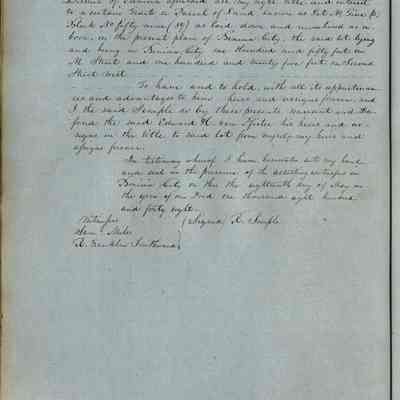 all my right title and interest
to a certain Tract or Parcel of Land, known as Lot No
Block No fifty nine (59) as laid down and numbered as a-
bove, in the present plan of Benicia City, the said lot lying
and being in Benicia City one Hundred and fifty feet on
M Street and one hundred and twenty five feet on Second
Street West.
To have and to hold, with all its appurtenan-
ces and advantages to him heirs and assigns forever, and
I the said Semple do by these presents warrant and de-
fend the said Edward H. von his heirs and as-
signs in the title to said lot from myself my heirs and
assigns forever.
In testimony whereof I have hereunto set my hand
and seal in the presence of the attesting witnesses in
Benicia City on this the eighteenth day of May in
the year of our Lord one thousand eight hundred
and forty eight.
Witnesses (Signed) R. Semple
Miles
R.